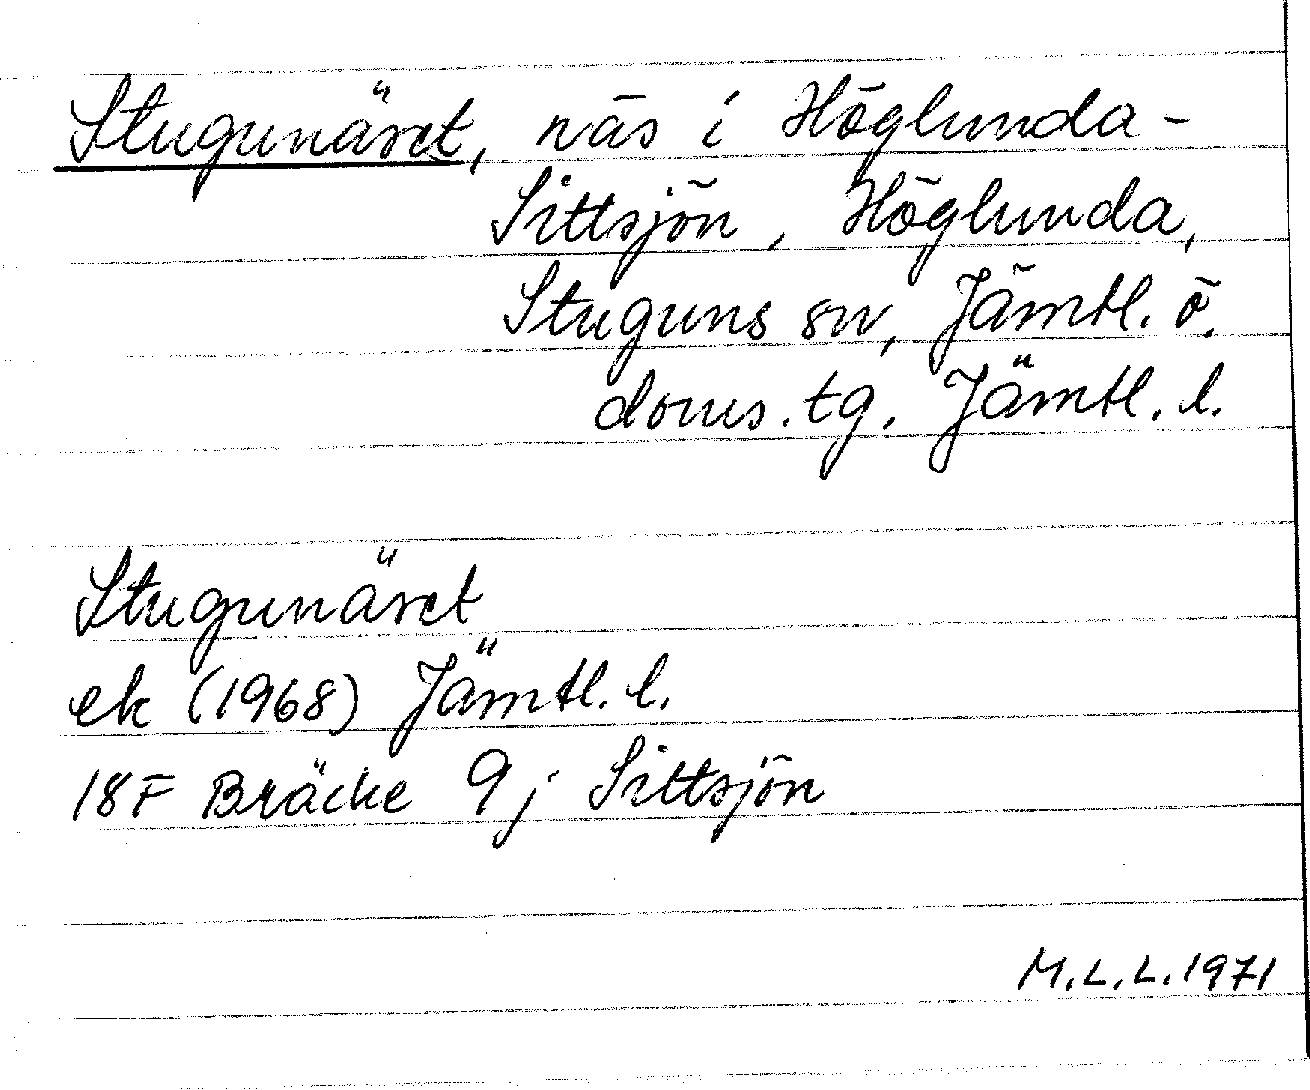 Stugunäset, näs i Höglunda-
Sittsjön, Höglunda,
Stuguns sn, Jämtl. ö.
doms.tg. Jämtl. l.
Stugunäset
ek (1968) Jämtl. l.
18F Bräcke 9j Sittsjön
M.L.L. 1971